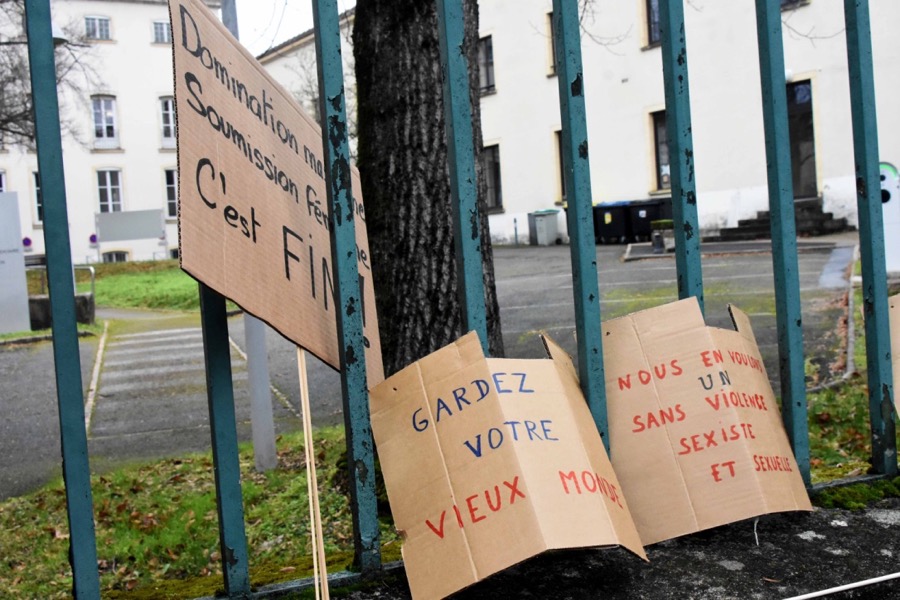 Domination
Soumission
C'est
GARDEZ
VOTRE
VIEUX MONDE
NOUS EN VOULONS
UN
SANS VIOLENCE
SEXISTE
ET SEXUELLE